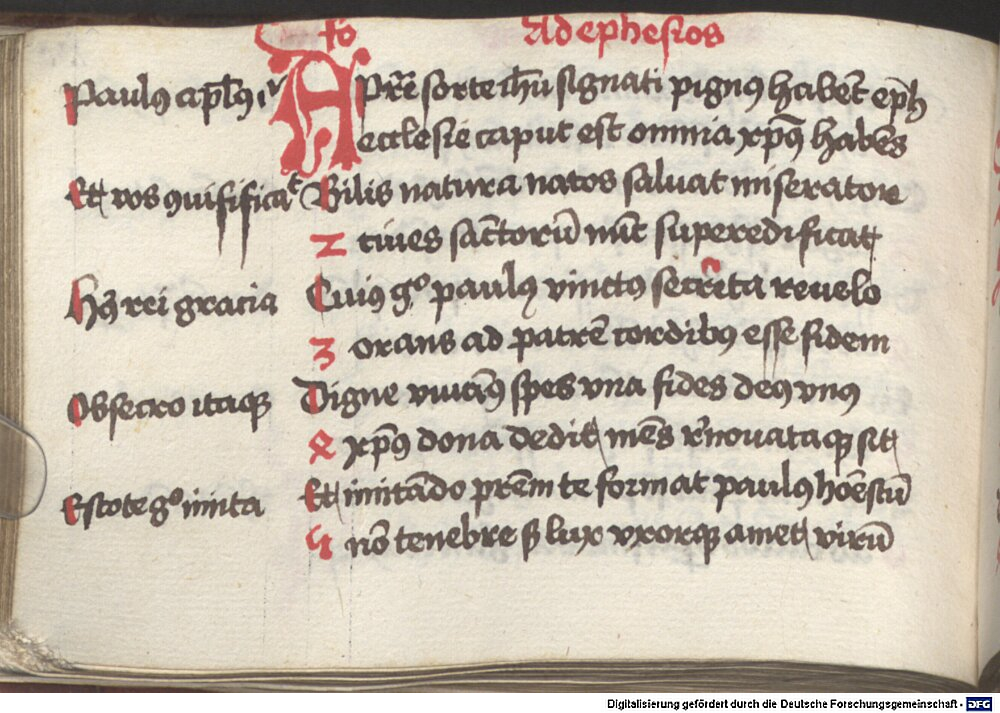 Ad ephesios
Paulꝯ apl̄ꝯ A Pr̄e sorte ih̄u signati pignꝯ habēt eph
ecclesie caput est omnia xp̄ꝯ habēs
Et vos ꝯuificaᵗ Bilis natura natos saluat miserator
2 ciues sāctorū nūc superedificat
Hꝯ rei gracia Cuiꝯ gᵒ paulꝯ vinctꝯ secreta reuelo
3 orans ad patrē cordibꝯ esse fidem
Obsecro itaqꝫ Digne viuamꝯ spes vna fides deꝯ vnꝯ
4 xp̄ꝯ dona dedit mēs rēnouataqꝫ sit
Estote gᵒ imita Et imitādo prēm te format paulꝯ honēstū
5 nō tenebre sꝫ lux vxorqꝫ amet virū
Digitalisierung gefördert durch die Deutsche Forschungsgemeinschaft - DFG